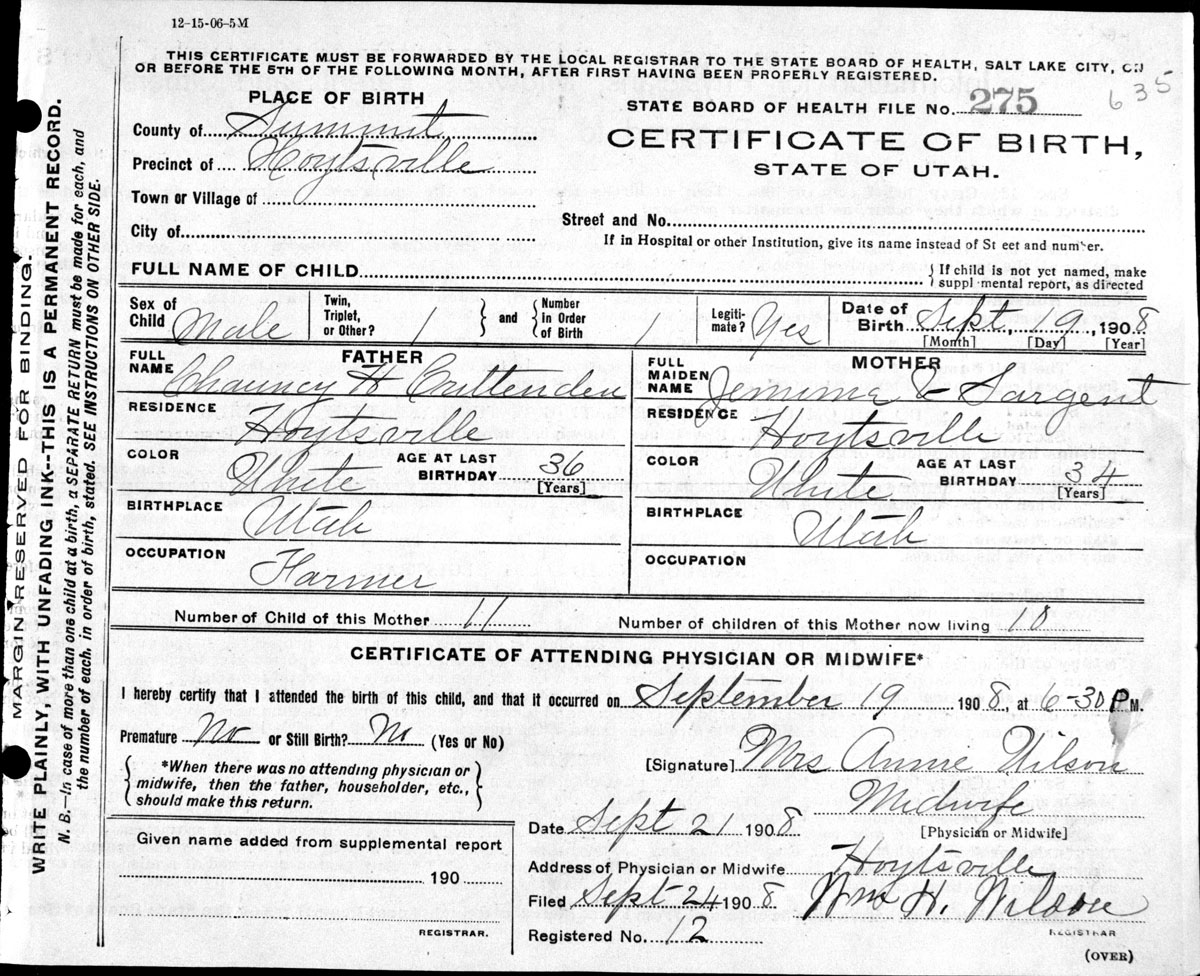 12-15-06-5M
THIS CERTIFICATE MUST BE FORWARDED BY THE LOCAL REGISTRAR TO THE STATE BOARD OF HEALTH, SALT LAKE CITY, ON
OR BEFORE THE 5TH OF THE FOLLOWING MONTH, AFTER FIRST HAVING BEEN PROPERLY REGISTERED.
PLACE OF BIRTH
County of Summit
Precinct of Hoytsville
Town or Village of
City of
STATE BOARD OF HEALTH FILE No. 275 635
CERTIFICATE OF BIRTH,
STATE OF UTAH.
Street and No.
If in Hospital or other Institution, give its name instead of St eet and number.
FULL NAME OF CHILD
If child is not yet named, make
suppl mental report, as directed
Sex of Child Male
Twin, Triplet, or Other? 1
and Number in Order of Birth 1
Legiti-mate? Yes
Date of Birth Sept. 19, 1908
[Month] [Day] [Year]
FATHER
FULL NAME Chauncy H Crittenden
RESIDENCE Hoytsville
COLOR White AGE AT LAST BIRTHDAY 36 [Years]
BIRTHPLACE Utah
OCCUPATION Farmer
MOTHER
FULL MAIDEN NAME Jemima E Sargent
RESIDENCE Hoytsville
COLOR White AGE AT LAST BIRTHDAY 34 [Years]
BIRTHPLACE Utah
OCCUPATION
Number of Child of this Mother 11 Number of children of this Mother now living 10
CERTIFICATE OF ATTENDING PHYSICIAN OR MIDWIFE*
I hereby certify that I attended the birth of this child, and that it occurred on September 19 1908, at 6-30 P M.
Premature No or Still Birth? No (Yes or No)
*When there was no attending physician or
midwife, then the father, householder, etc.,
should make this return.
[Signature] Mrs Annie Wilson
Midwife
[Physician or Midwife]
Date Sept 21 1908
Address of Physician or Midwife Hoytsville
Filed Sept 24 1908 Wm H. Wilson
REGISTRAR
Registered No. 12
(OVER)
Given name added from supplemental report
190
REGISTRAR.
MARGIN RESERVED FOR BINDING.
WRITE PLAINLY, WITH UNFADING INK--THIS IS A PERMANENT RECORD.
N. B.—In case of more than one child at a birth, a SEPARATE RETURN must be made for each, and
the number of each, in order of birth, stated. SEE INSTRUCTIONS ON OTHER SIDE.